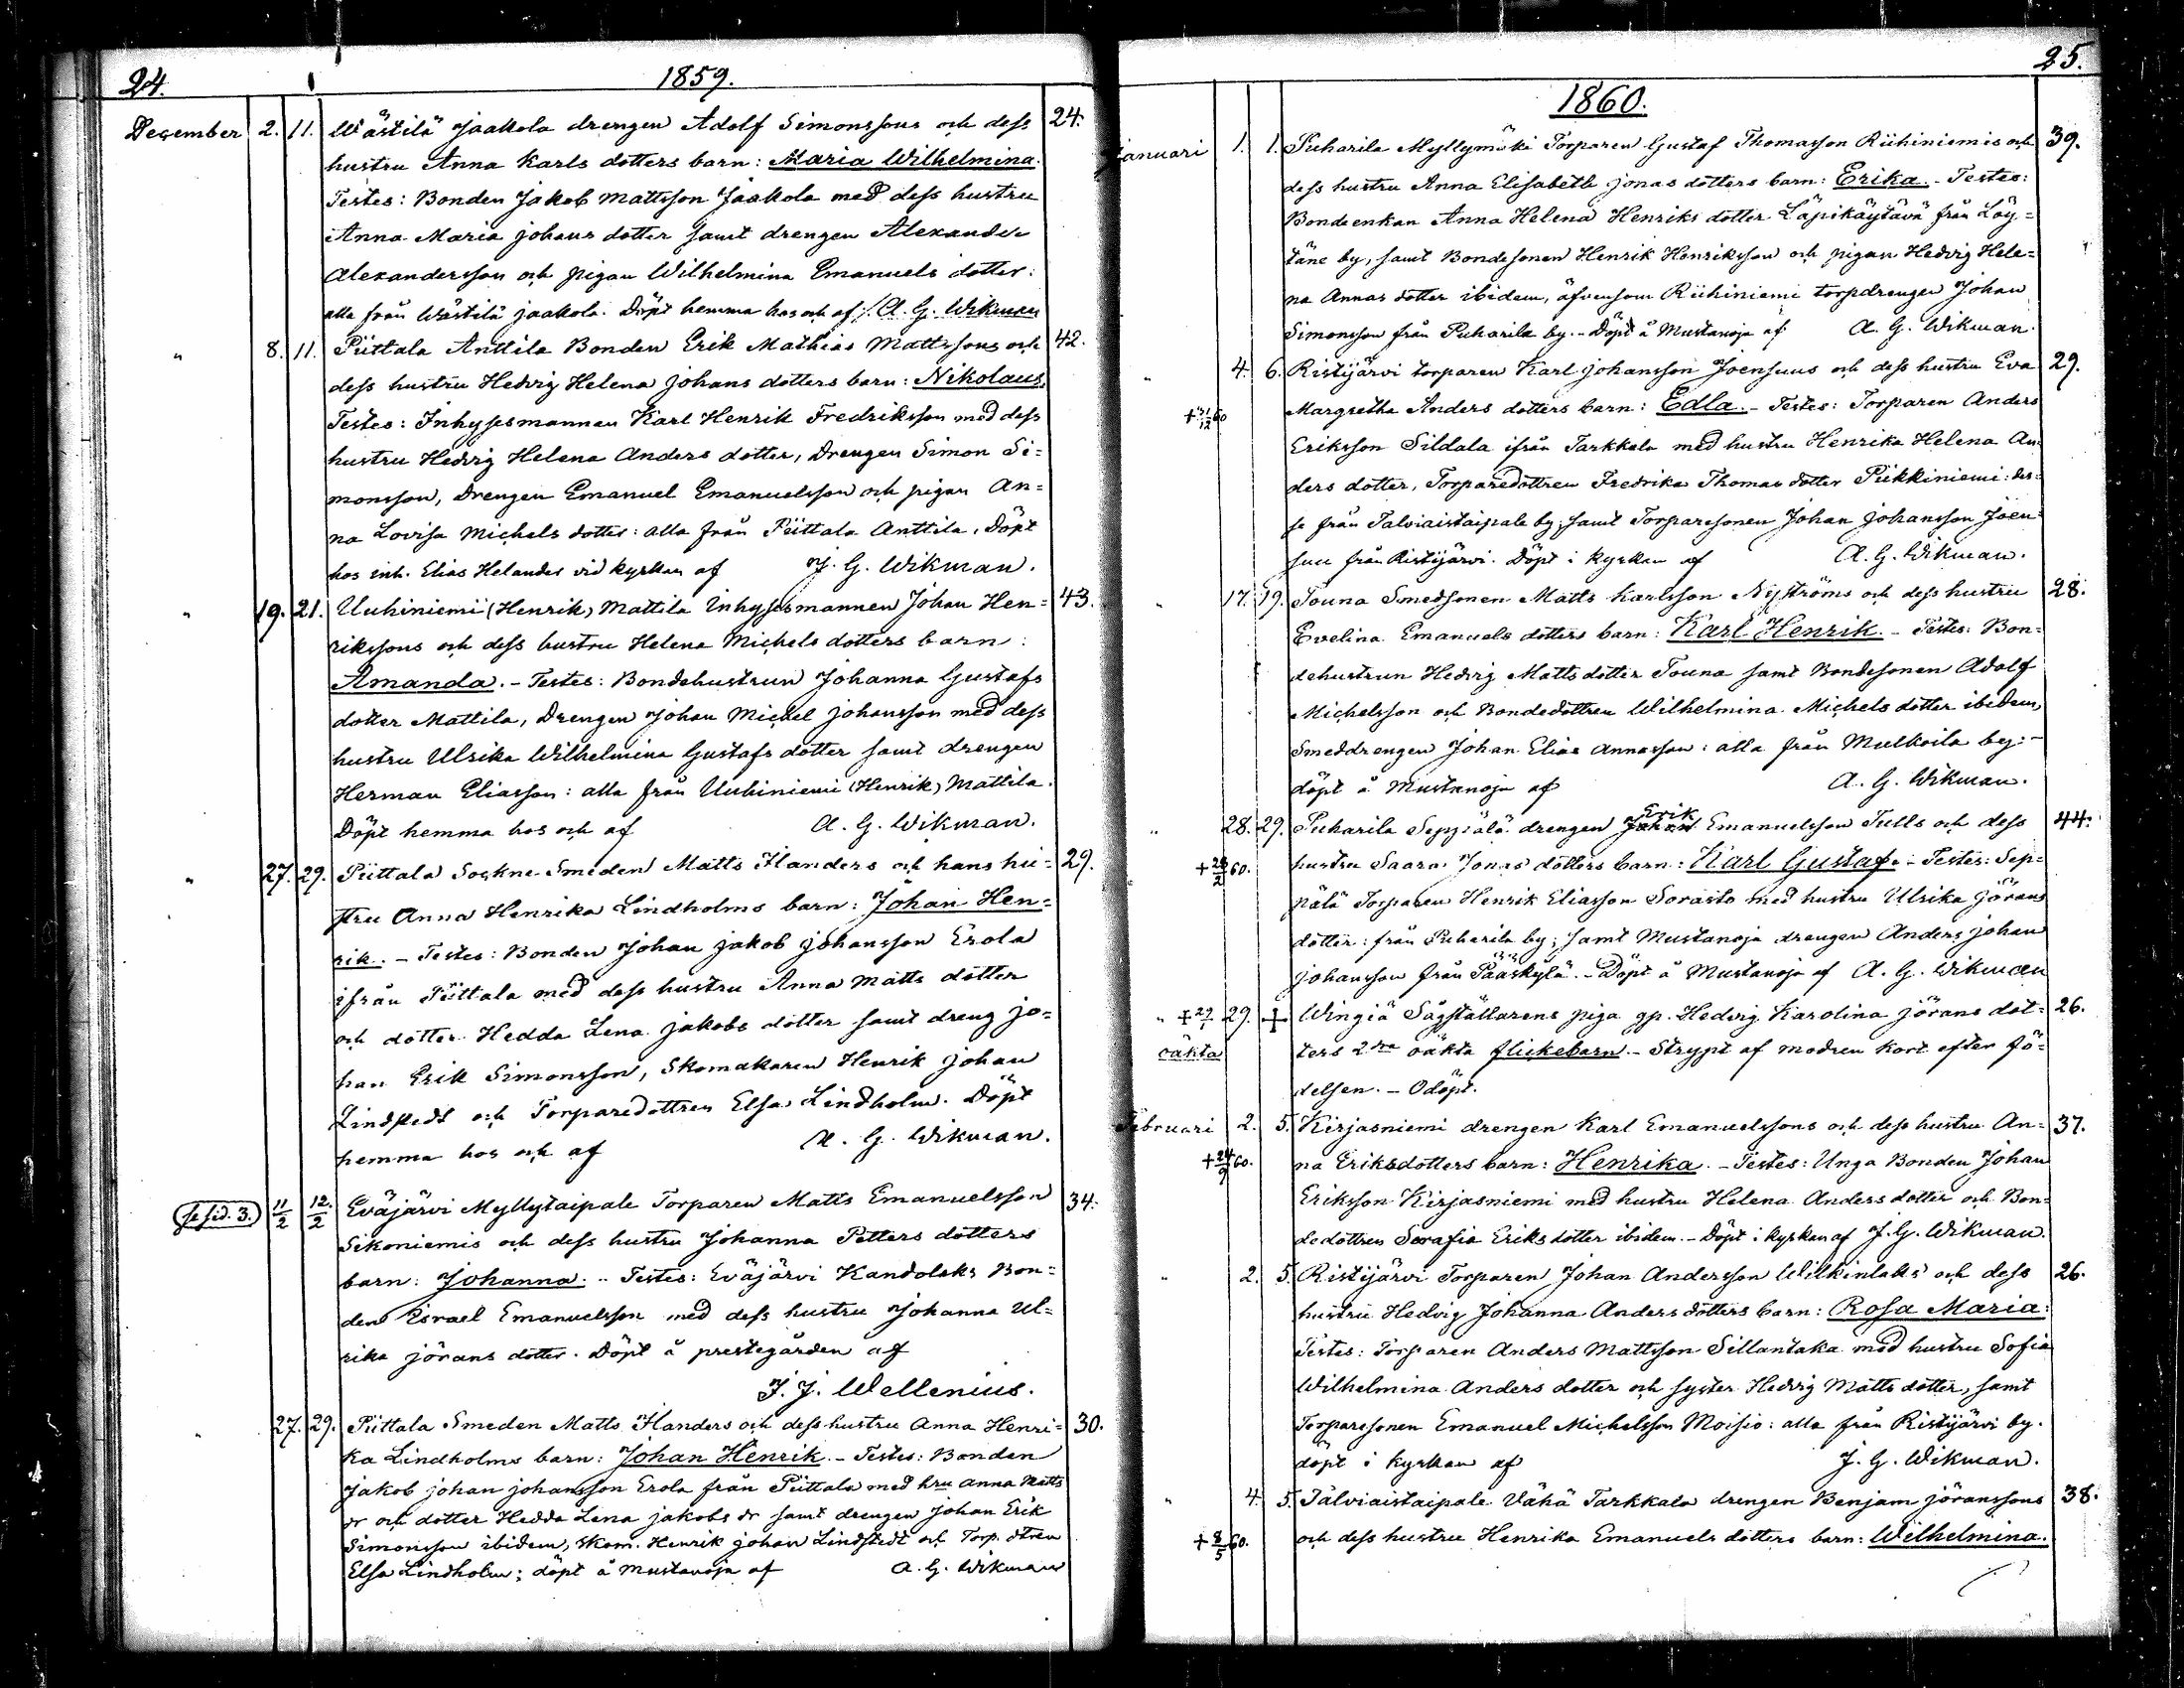 24. 1859.
December 2. 11. Wästilä Jaakola drengen Adolf Simonssons och dess 24.
hustru Anna Karls dotters barn: Maria Wilhelmina.
Testes: Bonden Jakob Mattsson Jaakola med dess hustru
Anna Maria Johans dotter samt drengen Alexander
Alexandersson och pigan Wilhelmina Emanuels dotter:
alla från Wästilä Jaakola. Döpt hemma hos och af /. A. G. Wikman
" 8. 11. Piittala Anttila Bonden Erik Mathias Mattssons och 42.
dess hustru Hedvig Helena Johans dotters barn: Nikolaus.
Testes: Inhysesmannen Karl Henrik Fredriksson med dess
hustru Hedvig Helena Anders dotter, Drengen Simon Si=
monsson, Drengen Emanuel Emanuelsson och pigan An=
na Lovisa Michels dotter: alla från Piittala Anttila. Döpt
hos inh. Elias Helander vid kyrkan af J. G. Wikman.
" 19. 21. Uuhiniemi (Henrik) Mattila Inhysesmannen Johan Hen= 43.
rikssons och dess hustru Helena Michels dotters barn:
Amanda. - Testes: Bondehustrun Johanna Gustafs
dotter Mattila, Drengen Johan Michel Johansson med dess
hustru Ulrika Wilhelmina Gustafs dotter samt drengen
Herman Eliasson: alla från Uuhiniemi (Henrik) Mattila.
Döpt hemma hos och af A. G. Wikman.
" 27. 29. Piittala Sockne-Smeden Matts Flanders och hans hu= 29.
stru Anna Henrika Lindholms barn: Johan Hen=
rik. - Testes: Bonden Johan Jakob Johansson Erola
ifrån Piittala med dess hustru Anna Matts dotter
och dotter Hedda Lena Jakobs dotter samt dreng Jo=
han Erik Simonsson, Skomakaren Henrik Johan
Lindstedt och Torparedottren Elsa Lindholm. Döpt
hemma hos och af A. G. Wikman.
se sid. 3. 11/2 12/2 Eväjärvi Myllytaipale Torparen Matts Emanuelsson 34.
Sikoniemis och dess hustru Johanna Petters dotters
barn: Johanna. - Testes: Eväjärvi Kandolaks Bon=
den Israel Emanuelsson med dess hustru Johanna Ul=
rika Jörans dotter. Döpt å prestegården af
J. J. Wellenius.
" 27. 29. Piittala Smeden Matts Flanders och dess hustru Anna Henri= 30.
ka Lindholms barn: Johan Henrik. - Testes: Bonden
Jakob Johan Johansson Erola från Piittala med hru Anna Matts
dr och dotter Hedda Lena Jakobs dr samt drengen Johan Erik
Simonsson ibidem, skom. Henrik Johan Lindstedt och Torp. dtren
Elsa Lindholm; döpt å Mustanoja af A. G. Wikman
25.
1860.
Januari 1. 1. Puharila Myllymäki Torparen Gustaf Thomasson Riihiniemis och 39.
dess hustru Anna Elisabeth Jonas dotters barn: Erika. - Testes:
Bondeenkan Anna Helena Henriks dotter Läpikäytävä från Löy=
täne by, samt Bondesonen Henrik Henriksson och pigan Hedvig Hele=
na Annas dotter ibidem, äfvensom Riihiniemi torpdrengen Johan
Simonsson från Puharila by. - Döpt å Mustanoja af A. G. Wikman.
" 4. 6. Ristijärvi torparen Karl Johansson Joensuus och dess hustru Eva 29.
+ 31/12 60 Margretha Anders dotters barn: Edla. - Testes: Torparen Anders
Eriksson Sildala ifrån Tarkkala med hustru Henrika Helena An=
ders dotter, Torparedottren Fredrika Thomas dotter Piikkiniemi: des=
se från Talviaistaipale by; samt Torparesonen Johan Johansson Joen=
suu från Ristijärvi. Döpt i kyrkan af A. G. Wikman.
" 17. 19. Touna Smedsonen Matts Karlsson Nyströms och dess hustru 28.
Evelina Emanuels dotters barn: Karl Henrik. - Testes: Bon=
dehustrun Hedvig Matts dotter Touna samt Bondesonen Adolf
Michelsson och Bondedottren Wilhelmina Michels dotter ibidem,
Smeddrengen Johan Elias Annasson: alla från Mulkoila by: -
döpt å Mustanoja af A. G. Wikman.
" 28. 29. Puharila Seppälä drengen Johan Erik Emanuelsson Tulls och dess 44.
+ 28/2 60. hustru Saara Jonas dotters barn: Karl Gustaf. - Testes: Sep=
pälä Torparen Henrik Eliasson Sorasto med hustru Ulrika Jörans
dotter: från Puharila by; samt Mustanoja drengen Anders Johan
Johansson från Pääskylä. - Döpt å Mustanoja af A. G. Wikman
" + 29/1 29. + Wingiä Sågställarens piga gp. Hedvig Karolina Jörans dot= 26.
oäkta ters 2dra oäkta flickebarn. - Strypt af modren kort efter fö=
delsen. - Odöpt.
Februari 2. 5. Kirjasniemi drengen Karl Emanuelssons och dess hustru An= 37.
+ 24/9 60. na Eriksdotters barn: Henrika. - Testes: Unga Bonden Johan
Eriksson Kirjasniemi med hustru Helena Anders dotter och Bon=
dedottren Serafia Eriks dotter ibidem. - Döpt i kyrkan af J. G. Wikman.
" 2. 5. Ristijärvi Torparen Johan Andersson Wilkinlaks och dess 26.
hustru Hedvig Johanna Anders dotters barn: Rosa Maria:
Testes: Torparen Anders Mattsson Sillantaka med hustru Sofia
Wilhelmina Anders dotter och syster Hedvig Matts dotter, samt
Torparesonen Emanuel Michelsson Moisio: alla från Ristijärvi by.
döpt i kyrkan af J. G. Wikman.
" 4. 5. Talviaistaipale Vähä Tarkkala drengen Benjam Jöranssons 38.
+ 8/5 60. och dess hustru Henrika Emanuels dotters barn: Wilhelmina.